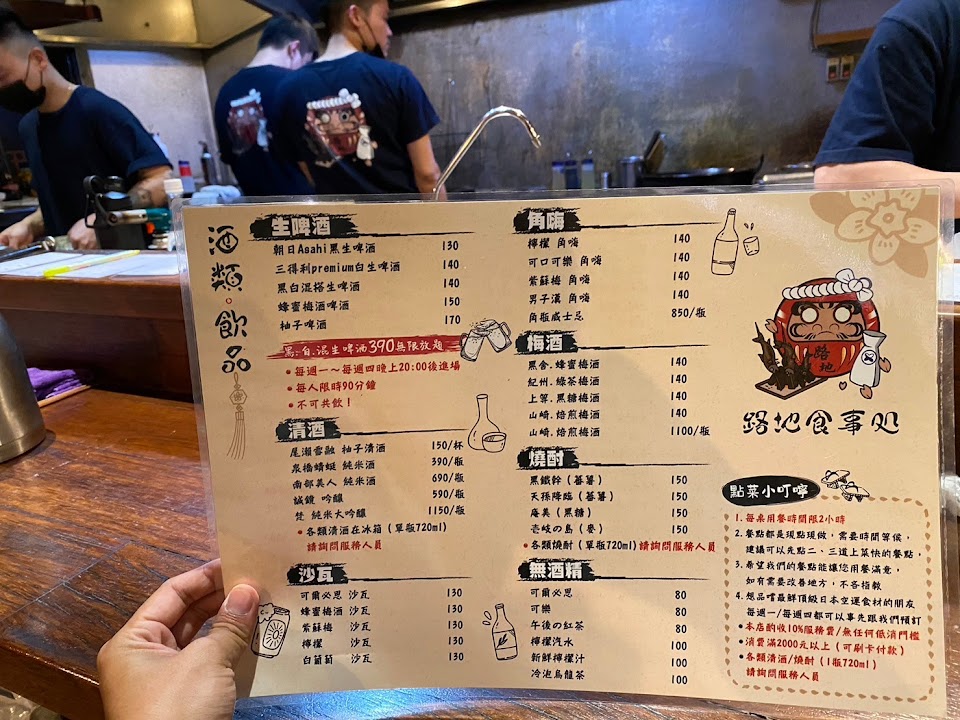 酒類·飲品
生啤酒
朝日Asahi黑生啤酒 130
三得利premium白生啤酒 140
黑白混搭生啤酒 140
蜂蜜梅酒啤酒 150
柚子啤酒 170
黑.白.混生啤酒390無限放題
•每週一~每週四晚上20:00後進場
•每人限時90分鐘
•不可共飲!
清酒
尾瀨雪融 柚子清酒 150/杯
泉橋蜻蜓 純米酒 390/瓶
南部美人 純米酒 690/瓶
誠鏡 吟釀 590/瓶
梵 純米大吟釀 1150/瓶
•各類清酒在冰箱(單瓶720ml)
請詢問服務人員
沙瓦
可爾必思 沙瓦 130
蜂蜜梅酒 沙瓦 130
紫蘇梅 沙瓦 130
檸檬 沙瓦 130
白葡萄 沙瓦 130
角嗨
檸檬 角嗨 140
可口可樂 角嗨 140
紫蘇梅 角嗨 140
男子漢 角嗨 140
角瓶威士忌 850/瓶
梅酒
黑舍.蜂蜜梅酒 140
紀州.綠茶梅酒 140
上等.黑糖梅酒 140
山崎.焙煎梅酒 140
山崎.焙煎梅酒 1100/瓶
燒酎
黑鐵幹(蕃薯) 150
天孫降臨(蕃薯) 150
奄美(黑糖) 150
壱岐の島(麥) 150
•各類燒酎(單瓶720ml)請詢問服務人員
無酒精
可爾必思 80
可樂 80
午後の紅茶 80
檸檬汽水 100
新鮮檸檬汁 100
冷泡烏龍茶 100
路地
路地食事処
點菜小叮嚀
1.每桌用餐時間限2小時
2.餐點都是現點現做,需要時間等候,
建議可以先點二、三道上菜快的餐點,
3.希望我們的餐點能讓您用餐滿意,
如有需要改善地方,不吝指教
4.想品嚐最鮮頂級日本空運食材的朋友
每週一/每週四都可以事先跟我們預訂
•本店酌收10%服務費/無任何低消門檻
•消費滿2000元以上(可刷卡付款)
•各類清酒/燒酎(1瓶720ml)
請詢問服務人員